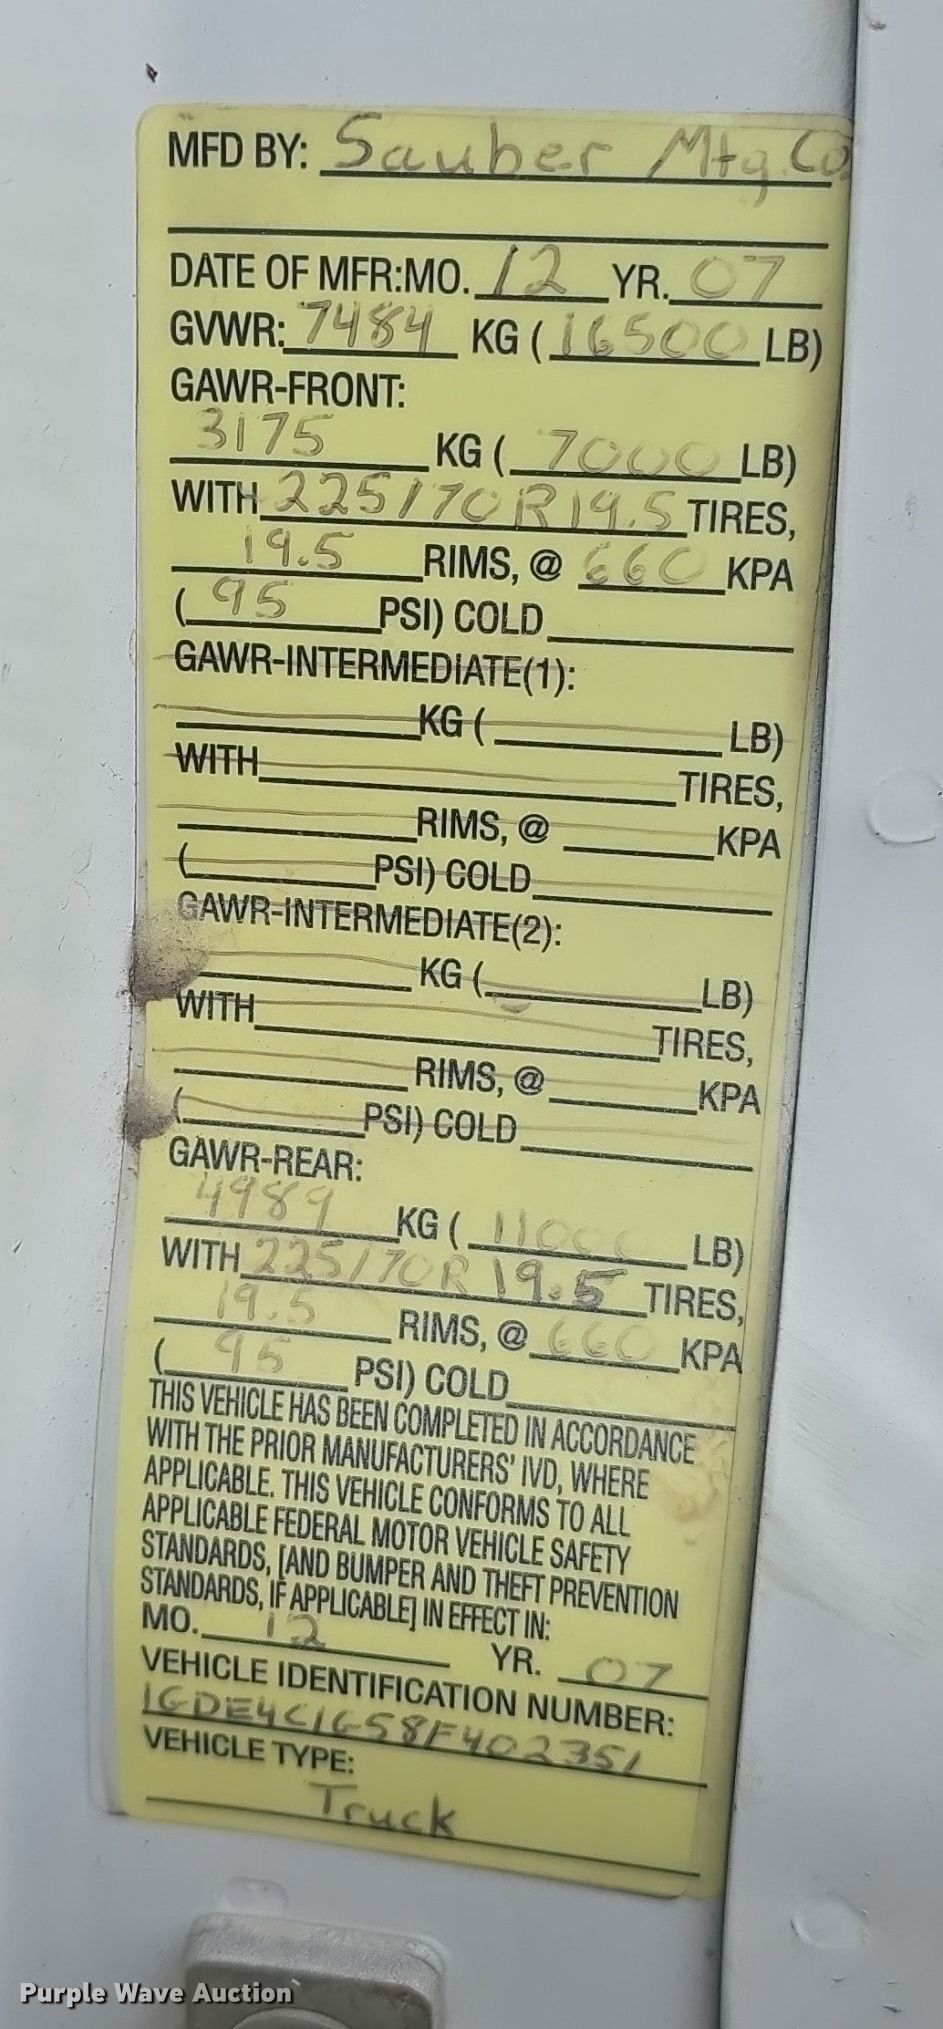 MFD BY: Sauber Mfg. Co.
DATE OF MFR:MO. 12 YR. 07
GVWR: 7484 KG ( 16500 LB)
GAWR-FRONT:
3175 KG ( 7000 LB)
WITH 225/70R19.5 TIRES,
19.5 RIMS, @ 660 KPA
( 95 PSI) COLD
GAWR-INTERMEDIATE(1):
KG ( LB)
WITH TIRES,
RIMS, @ KPA
( PSI) COLD
GAWR-INTERMEDIATE(2):
KG ( LB)
WITH TIRES,
RIMS, @ KPA
( PSI) COLD
GAWR-REAR:
4989 KG ( 11000 LB)
WITH 225/70R 19.5 TIRES,
19.5 RIMS, @ 660 KPA
( 95 PSI) COLD
THIS VEHICLE HAS BEEN COMPLETED IN ACCORDANCE
WITH THE PRIOR MANUFACTURERS' IVD, WHERE
APPLICABLE. THIS VEHICLE CONFORMS TO ALL
APPLICABLE FEDERAL MOTOR VEHICLE SAFETY
STANDARDS, [AND BUMPER AND THEFT PREVENTION
STANDARDS, IF APPLICABLE] IN EFFECT IN:
MO. 12 YR. 07
VEHICLE IDENTIFICATION NUMBER:
1GDE4C1G58F402351
VEHICLE TYPE:
Truck
Purple Wave Auction